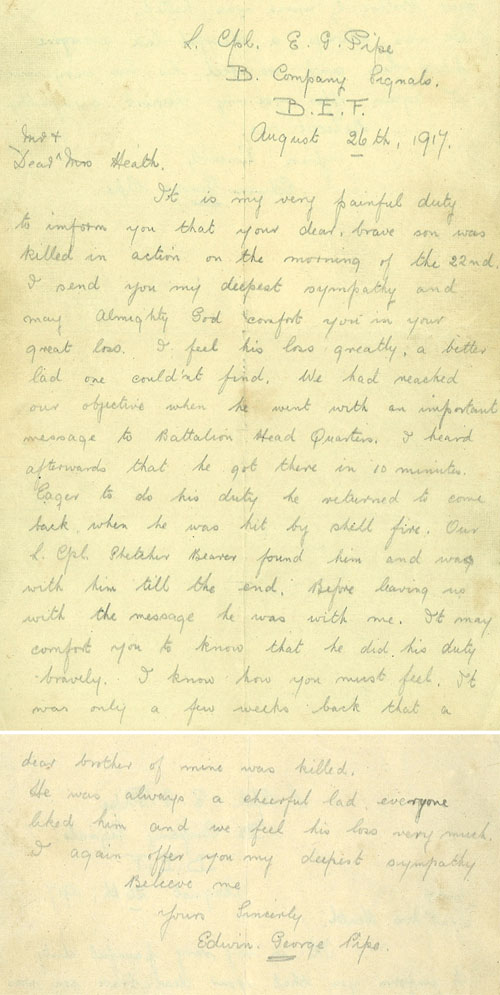 L. Cpl. E. G. Pipe
B. Company Signals.
B. E. F.
August 26th, 1917.
Mr +
Dear Mrs Heath.
It is my very painful duty
to imform you that your dear, brave son was
killed in action on the morning of the 22nd.
I send you my deepest sympathy and
may Almighty God comfort you in your
great loss. I feel his loss greatly, a better
lad one could'nt find. We had reached
our objective when he went with an important
message to Battalion Head Quarters. I heard
afterwards that he got there in 10 minutes.
Eager to do his duty he returned to come
back, when he was hit by shell fire. Our
L. Cpl. Stretcher Bearer found him and was
with him till the end. Before leaving us
with the message he was with me. It may
comfort you to know that he did his duty
bravely. I know how you must feel. It
was only a few weeks back that a
dear brother of mine was killed.
He was always a cheerful lad, everyone
liked him and we feel his loss very much.
I again offer you my deepest sympathy
Believe me
Yours Sincerely
Edwin. George Pipe.